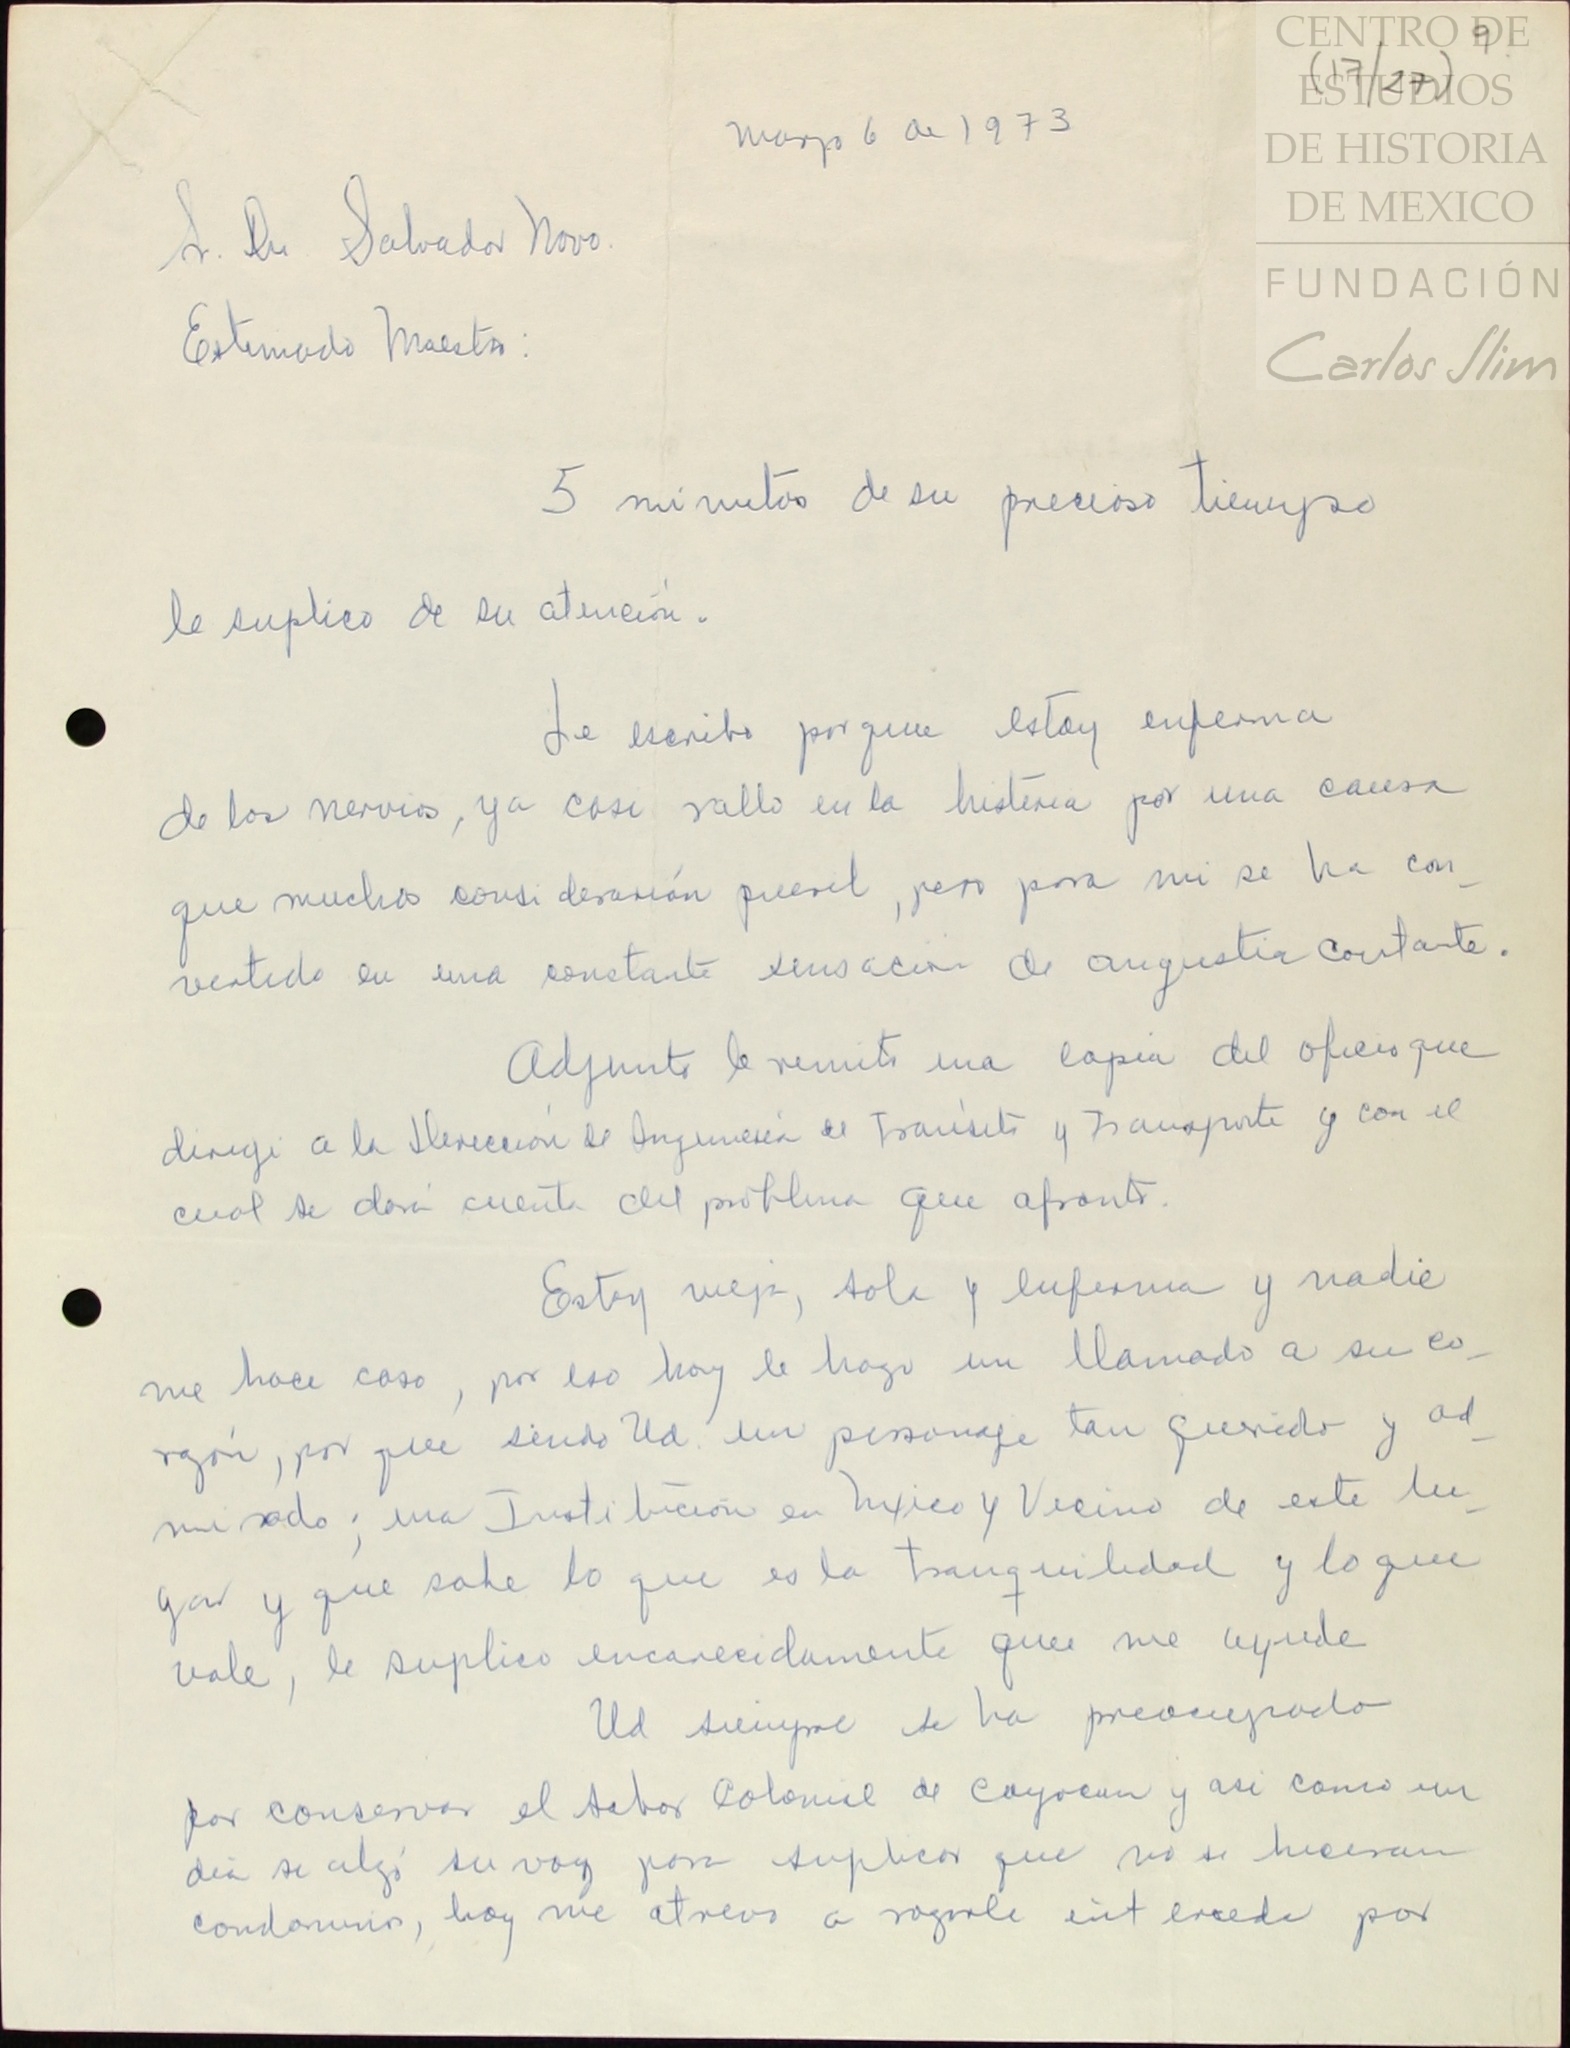 CENTRO DE
ESTUDIOS
DE HISTORIA
DE MEXICO
FUNDACIÓN
Carlos Slim
9
(17/27)
Marzo 6 de 1973
Sr. Dn Salvador Novo.
Estimado Maestro:
5 minutos de su precioso tiempo
le suplico de su atención.
Le escribo porque estoy enferma
de los nervios, ya casi rallo en la histeria por una causa
que muchos considerarión pueril, pero para mi se ha con_
vertido en una constante sensación de angustia constante.
Adjunto le remito una copia del oficio que
dirigi a la Dirección de Ingenieria de Tránsito y Transporte y con el
cual se dará cuenta del problema que afronto.
Estoy vieja, sola y enferma y nadie
me hace caso, por eso hoy le hago un llamado a su co_
razón, por que siendo Ud. un personaje tan querido y ad_
mirado; una Institución en México y Vecino de este lu_
gar y que sabe lo que es la tranquilidad y lo que
vale, le suplico encarecidamente que me ayude
Ud siempre se ha preocupado
por conservar el sabor Colonial de Coyocan y asi como un
dia se alzó su voz para suplicar que no se hicieran
condominios, hoy me atrevo a rogarle interceda por